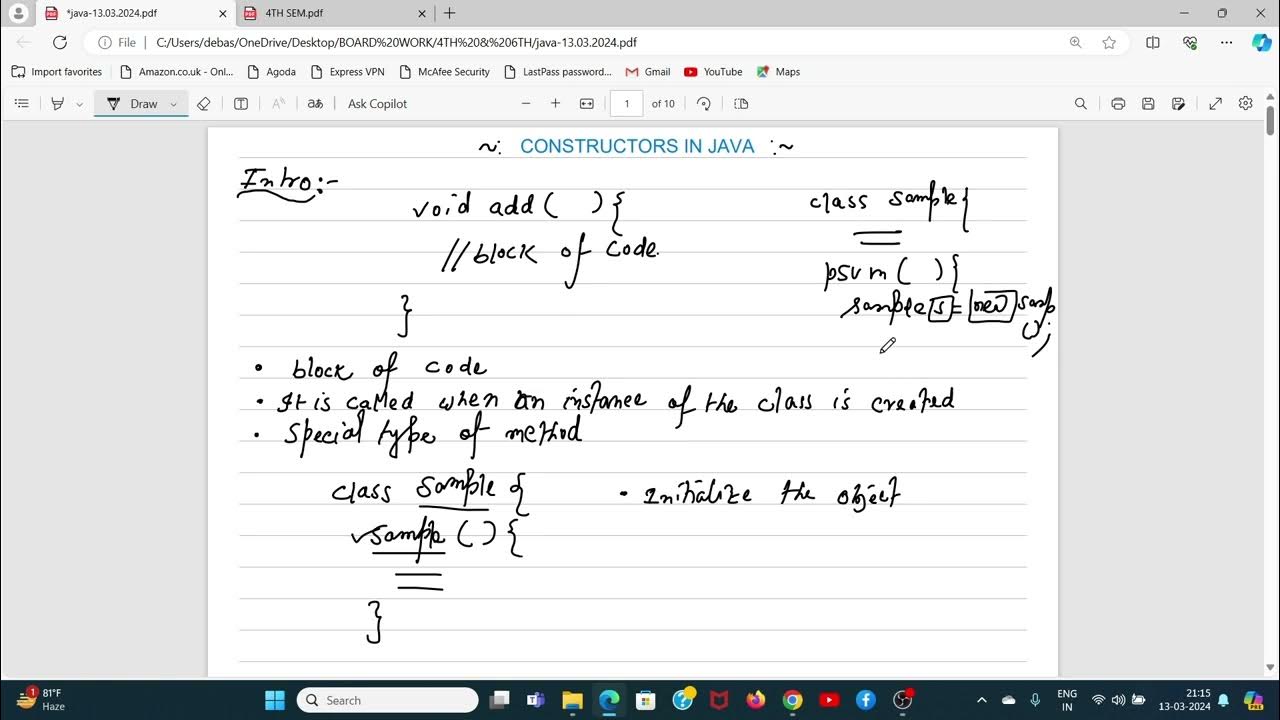 *java-13.03.2024.pdf
4TH SEM.pdf
File
C:/Users/debas/OneDrive/Desktop/BOARD%20WORK/4TH%20&%206TH/java-13.03.2024.pdf
Import favorites
Amazon.co.uk - Onl...
Agoda
Express VPN
McAfee Security
LastPass password...
Gmail
YouTube
Maps
Draw
Ask Copilot
1 of 10
~: CONSTRUCTORS IN JAVA :~
Intro:-
void add ( ) {
//block of code.
}
class sample{
psvm ( ) {
sample s = new samp
();
• block of code
• It is called when an instance of the class is created
• Special type of method
class sample {
sample ( ) {
}
• Initialize the object
1
81°F
Haze
Search
ENG
IN
21:15
13-03-2024